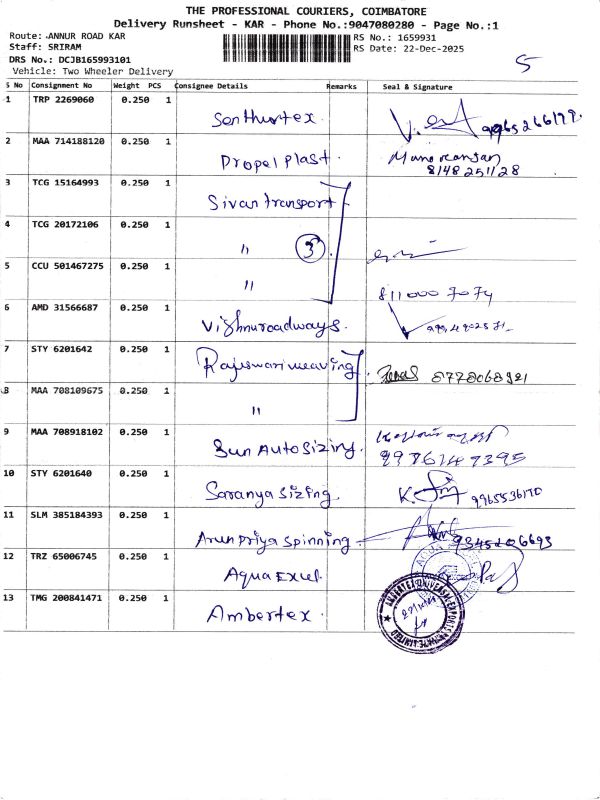 THE PROFESSIONAL COURIERS, COIMBATORE
Delivery Runsheet - KAR - Phone No.:9047080280 - Page No.:1
Route: ANNUR ROAD KAR RS No.: 1659931
Staff: SRIRAM RS Date: 22-Dec-2025
DRS No.: DCJB165993101
Vehicle: Two Wheeler Delivery
5
S No Consignment No Weight PCS Consignee Details Remarks Seal & Signature
1 TRP 2269060 0.250 1 Senthurtex
2 MAA 714188120 0.250 1 Propel Plast. Manoransan
8148251128
3 TCG 15164993 0.250 1 Sivan transport
4 TCG 20172106 0.250 1 " 3
5 CCU 501467275 0.250 1 " 811000 7074
6 AMD 31566687 0.250 1 Vishnuroadways.
7 STY 6201642 0.250 1 Rajeswari weaving
8 MAA 708109675 0.250 1 "
9 MAA 708918102 0.250 1 Sun Auto Sizing.
10 STY 6201640 0.250 1 Saranya Sizing 9965536170
11 SLM 385184393 0.250 1 Arunpriya Spinning.
12 TRZ 65006745 0.250 1 Aqua Excel
13 TMG 200841471 0.250 1 Ambertex.